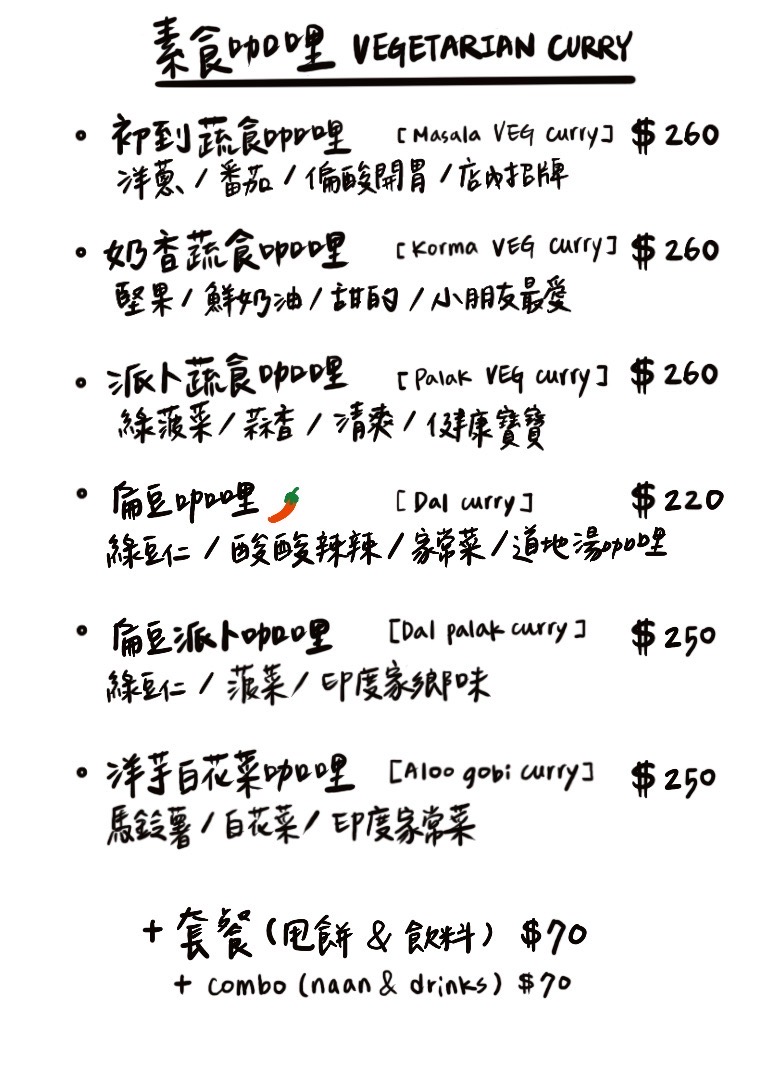 素食咖哩 VEGETARIAN CURRY
初到蔬食咖哩 [Masala VEG curry] $260
洋蔥 / 番茄 / 偏酸開胃 / 店內招牌
奶香蔬食咖哩 [Korma VEG curry] $260
堅果 / 鮮奶油 / 甜的 / 小朋友最愛
派卜蔬食咖哩 [Palak VEG curry] $260
綠菠菜 / 蒜香 / 清爽 / 健康寶寶
扁豆咖哩 [Dal curry] $220
綠豆仁 / 酸酸辣辣 / 家常菜 / 道地湯咖哩
扁豆派卜咖哩 [Dal palak curry] $250
綠豆仁 / 菠菜 / 印度家鄉味
洋芋白花菜咖哩 [Aloo gobi curry] $250
馬鈴薯 / 白花菜 / 印度家常菜
+ 套餐 (甩餅 & 飲料) $70
+ combo (naan & drinks) $70